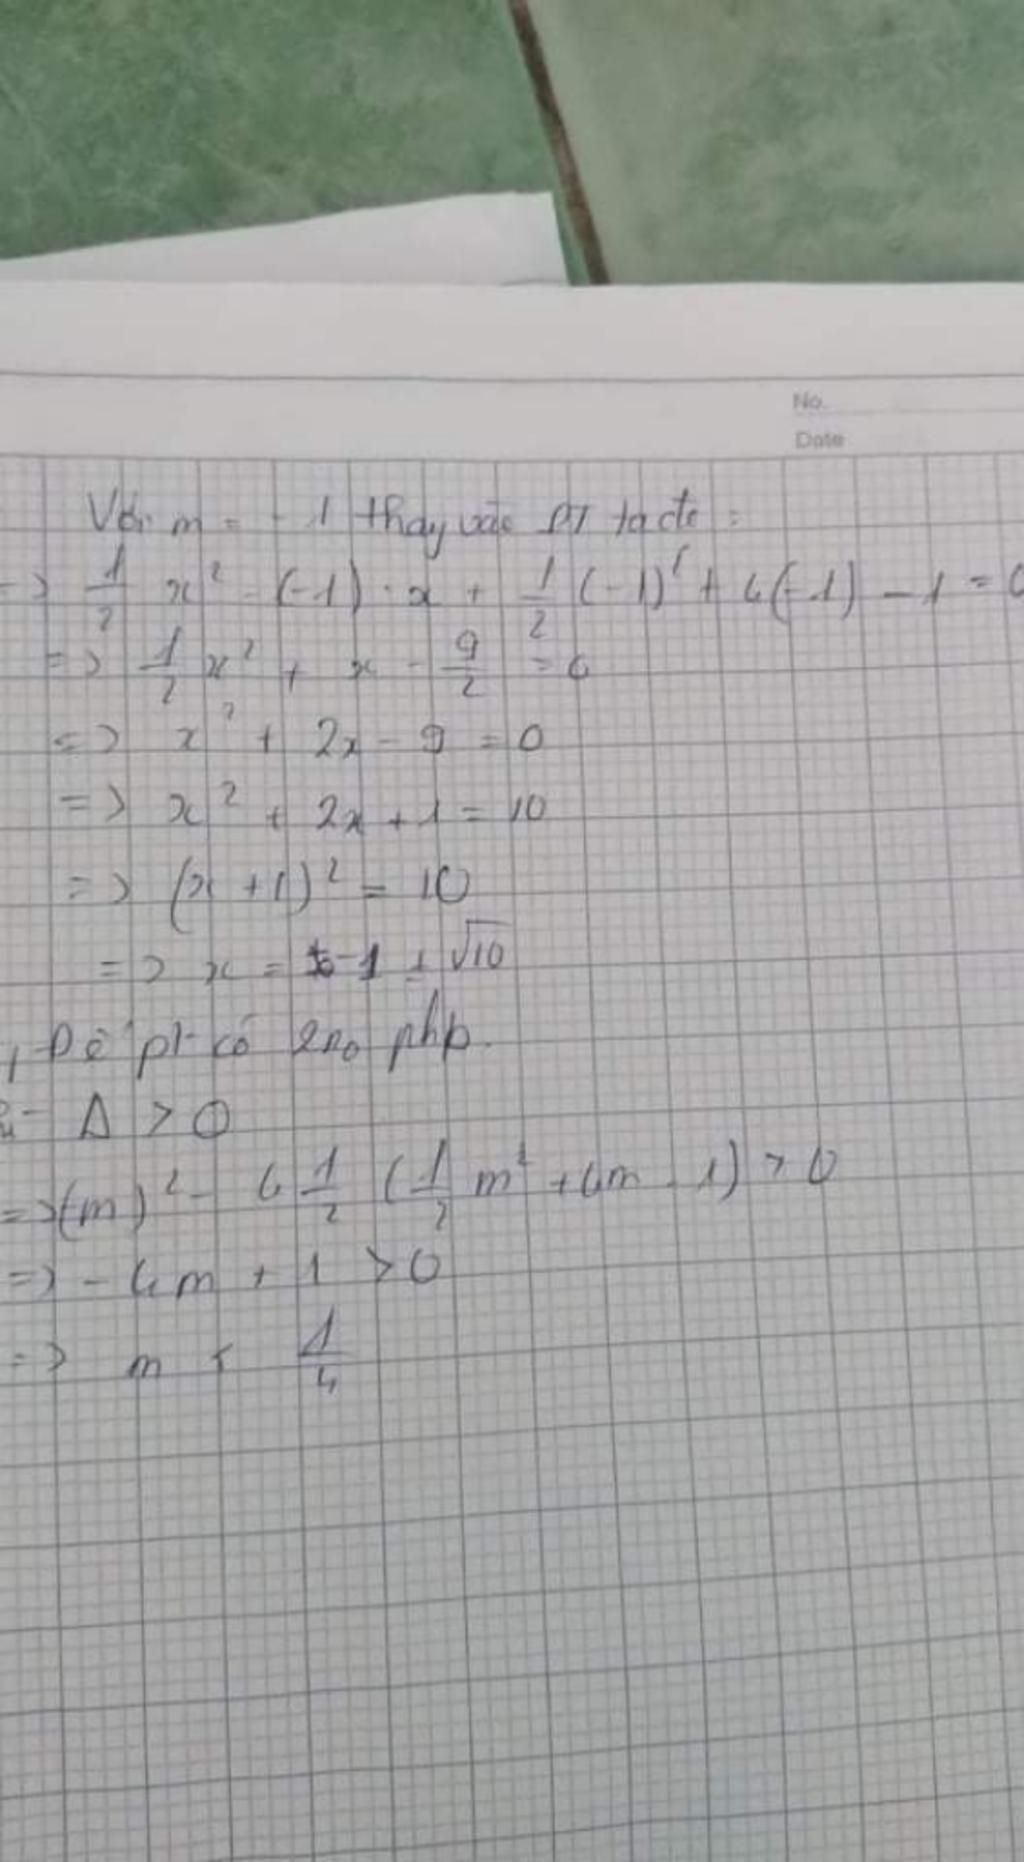 No.
Date
Với m = -1 thay vào PT ta dc :
=> 1/2 x² - (-1) . x + 1/2 (-1)² + 4(-1) - 1 = 0
=> 1/2 x² + x - 9/2 = 0
=> x² + 2x - 9 = 0
=> x² + 2x + 1 = 10
=> (x + 1)² = 10
=> x = -1 ± √10
, Để pt có 2 no pb.
Δ > 0
=> (-m)² - 4 1/2 (1/2 m² + 4m - 1) > 0
=> - 4m + 1 > 0
=> m < 1/4